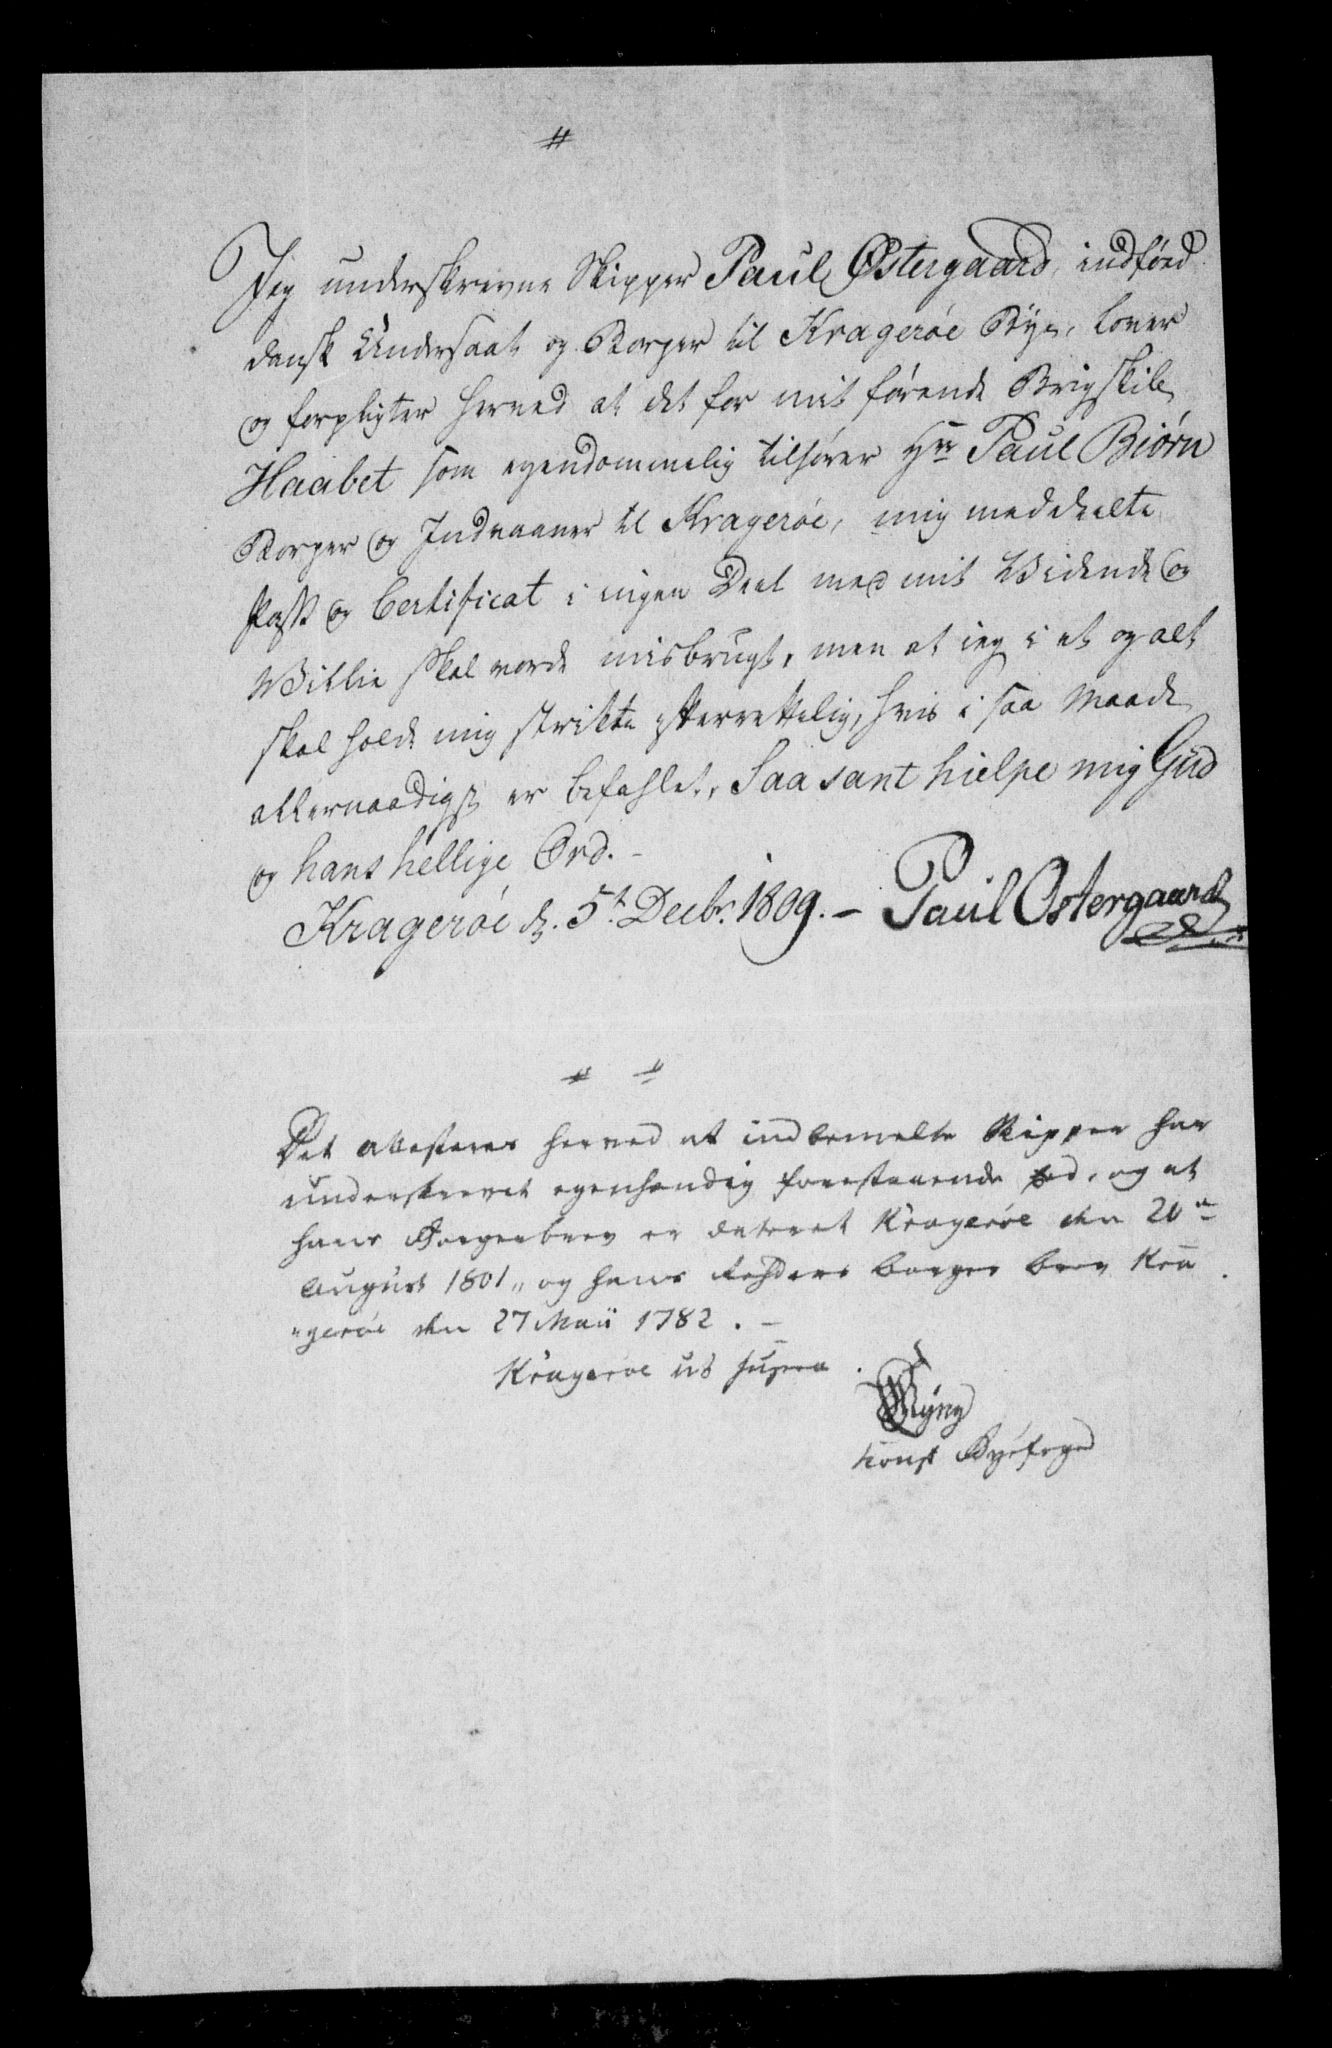 #
Jeg underskrevne Skipper Paul Østergaard, indføed
dansk Undersaat og Borger til Kragerøe Bÿe, lover
og forpligter herved at det for mit førende Brigskib
Haabet som egendommelig tilhører Hrr Paul Biørn
Borger og Indvaaner til Kragerøe, mig meddeelte
Pass og Certificat i ingen Deel med mit Vidende og
Villie skal vorde misbrugt, men at ieg i et og alt
skal holde mig strikte efterrettelig, hvis i saa Maade
allernaadigst er befahlet, Saa sant hielpe mig Gud
og hans hellige Ord. -
Kragerøe d. 5t Decbr. 1809. - Paul Ostergaard
# #
Det attesteres herved at indbemelte Skipper har
underskrevet egenhændig forestaaende Ed, og at
hans Borgerbrev er dateret Kragerøe den 20de
August 1801, og hans Rehders borger brev Kra
"gerøe den 27 Maii 1782. -
Kragerøe ut supra
const Byefoged